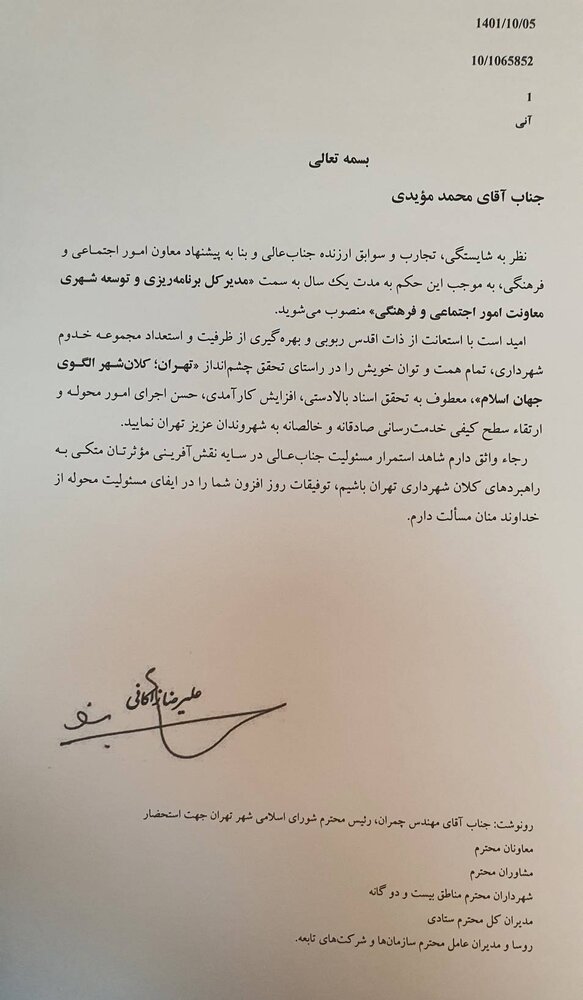 1401/10/05
10/1065852
1
آنی
بسمه تعالی
جناب آقای محمد مؤیدی
نظر به شایستگی، تجارب و سوابق ارزنده جناب‌عالی و بنا به پیشنهاد معاون امور اجتماعی و
فرهنگی، به موجب این حکم به مدت یک سال به سمت «مدیرکل برنامه‌ریزی و توسعه شهری
معاونت امور اجتماعی و فرهنگی» منصوب می‌شوید.
امید است با استعانت از ذات اقدس ربوبی و بهره‌گیری از ظرفیت و استعداد مجموعه خدوم
شهرداری، تمام همت و توان خویش را در راستای تحقق چشم‌انداز «تهران؛ کلان‌شهر الگوی
جهان اسلام»، معطوف به تحقق اسناد بالادستی، افزایش کارآمدی، حسن اجرای امور محوله و
ارتقاء سطح کیفی خدمت‌رسانی صادقانه و خالصانه به شهروندان عزیز تهران نمایید.
رجاء واثق دارم شاهد استمرار مسئولیت جناب‌عالی در سایه نقش‌آفرینی مؤثرتان متکی به
راهبردهای کلان شهرداری تهران باشیم، توفیقات روز افزون شما را در ایفای مسئولیت محوله از
خداوند منان مسألت دارم.
علیرضا زاکانی
رونوشت: جناب آقای مهندس چمران، رئیس محترم شورای اسلامی شهر تهران جهت استحضار
معاونان محترم
مشاوران محترم
شهرداران محترم مناطق بیست و دو گانه
مدیران کل محترم ستادی
روسا و مدیران عامل محترم سازمان‌ها و شرکت‌های تابعه.